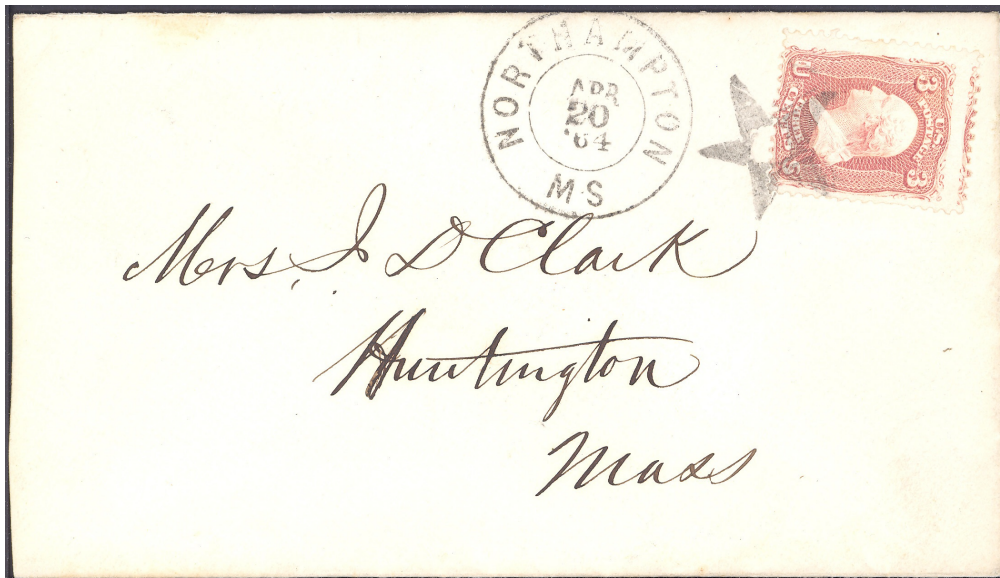 NORTHAMPTON
APR
20
'64
MS
U.S.
POSTAGE
3
3
U
S
Mrs, J D Clark
Huntington
Mass